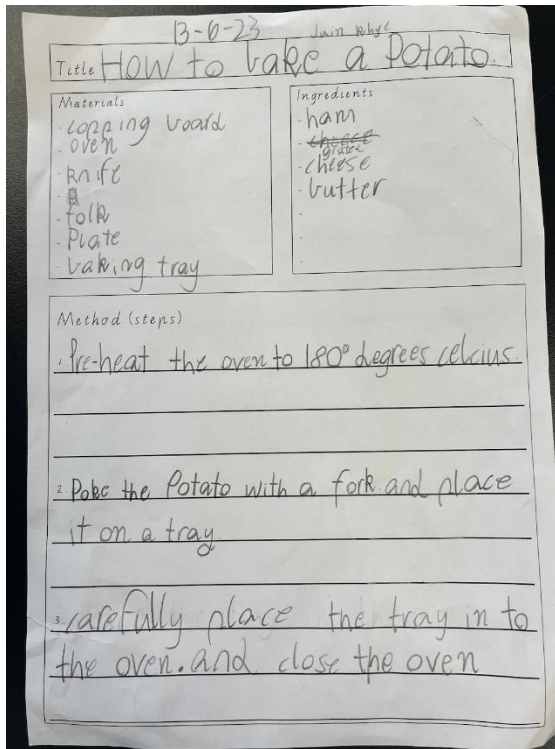 13-6-23
Title How to bake a Potato.
Materials
- copping board
- oven
- knife
- folk
- Plate
- baking tray
Ingredients
- ham
- grated
cheese
- butter
Method (steps)
1. Pre-heat the oven to 180° degrees celcius.
2. Poke the Potato with a fork and place
it on a tray
3. carefully place the tray in to
the oven. and close the oven